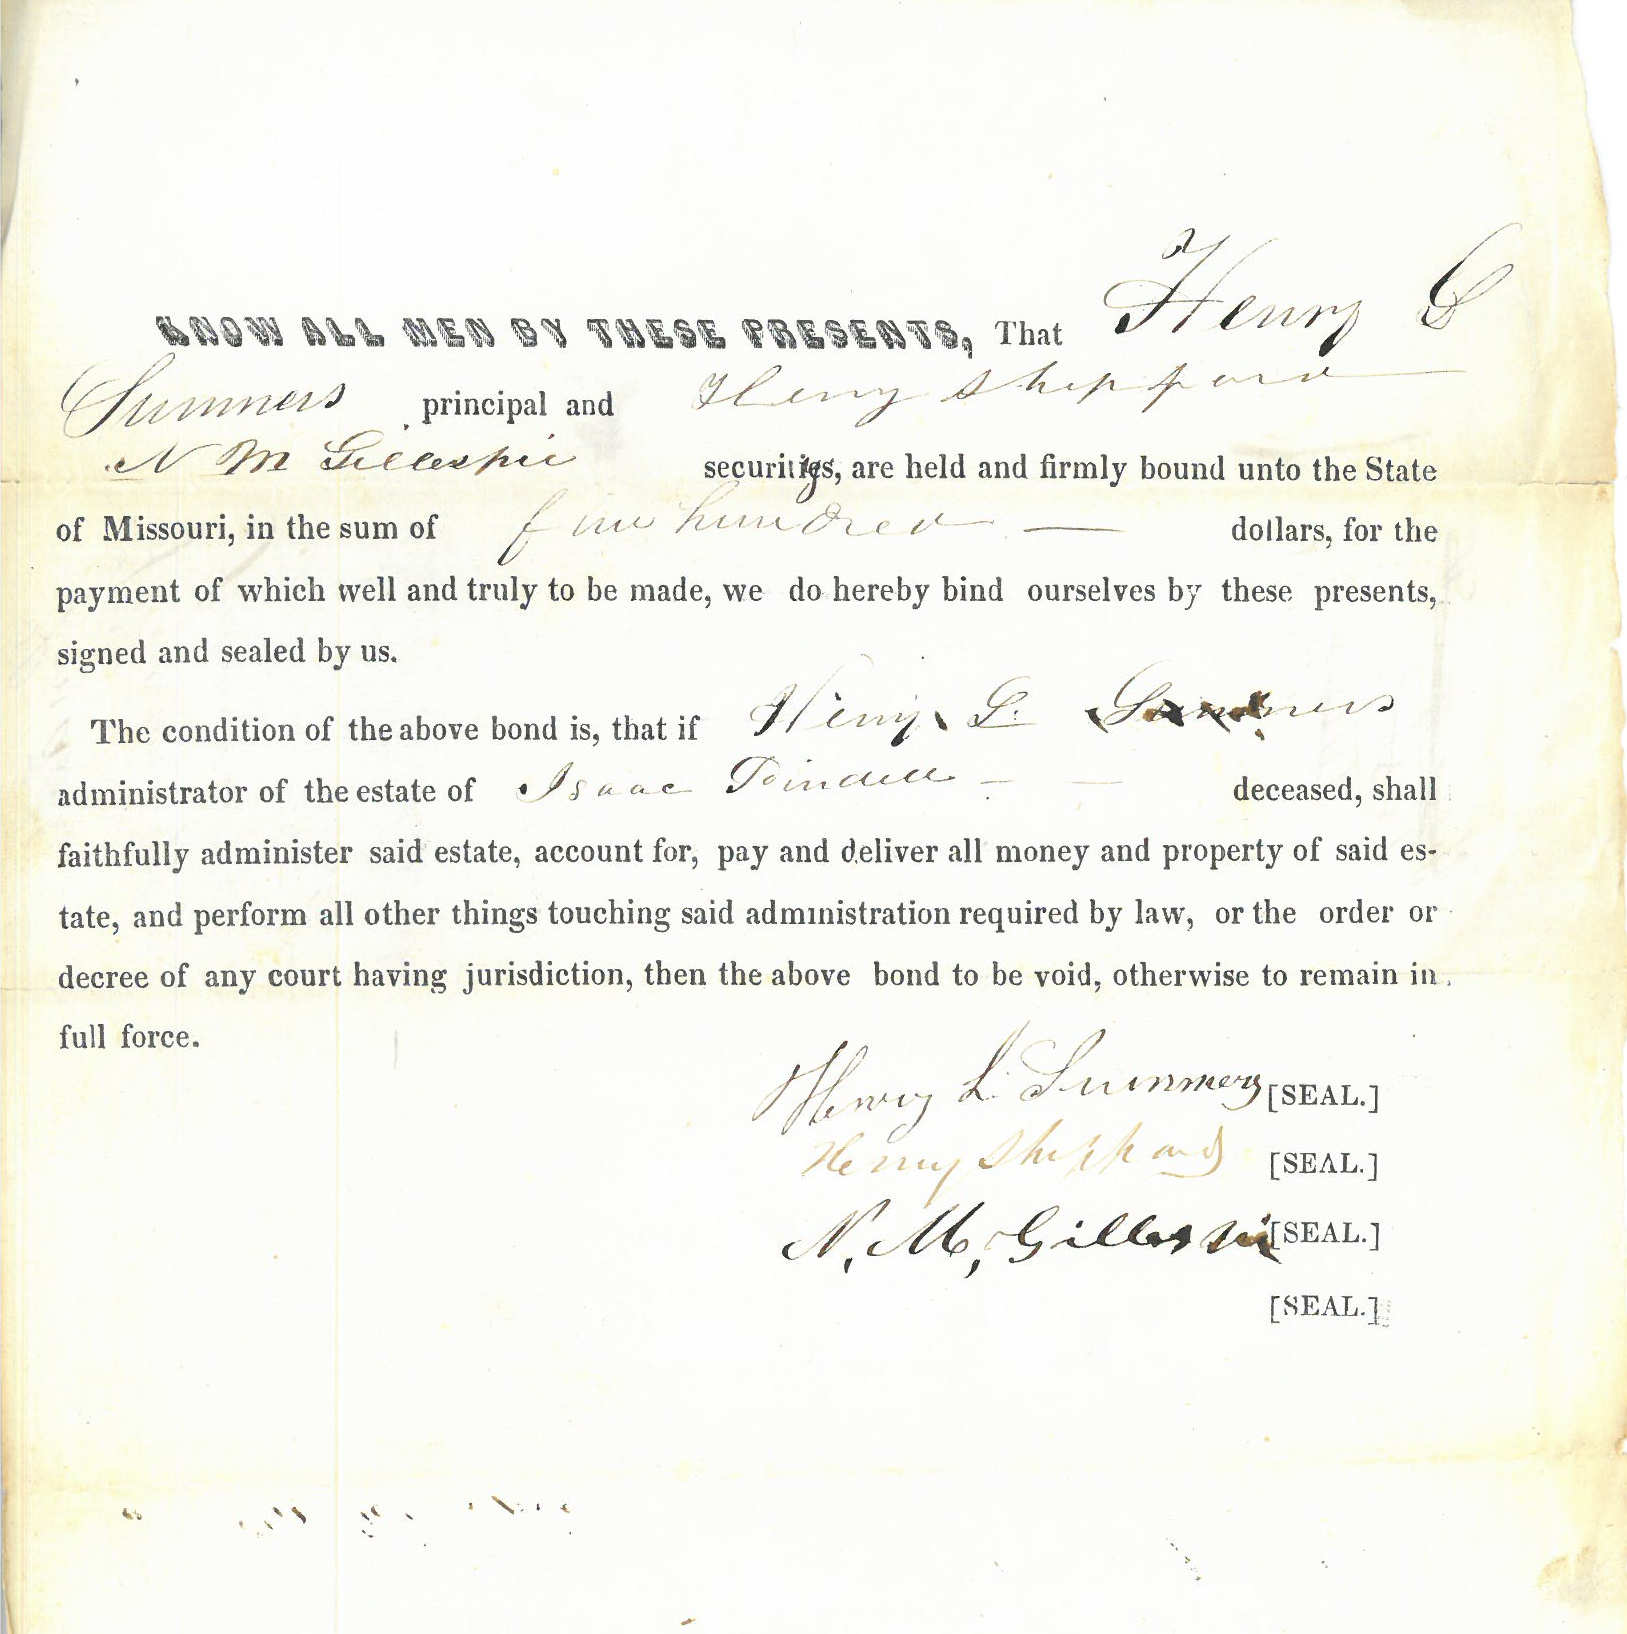 KNOW ALL MEN BY THESE PRESENTS, That Henry L
Summers , principal and Henry Sheppard
N M Gillespie securities, are held and firmly bound unto the State
of Missouri, in the sum of five hundred — dollars, for the
payment of which well and truly to be made, we do hereby bind ourselves by these presents,
signed and sealed by us.
The condition of the above bond is, that if Henry L. Summers
administrator of the estate of Isaac Toindell - - deceased, shall
faithfully administer said estate, account for, pay and deliver all money and property of said es-
tate, and perform all other things touching said administration required by law, or the order or
decree of any court having jurisdiction, then the above bond to be void, otherwise to remain in
full force.
Henry L. Summers [SEAL.]
Henry Sheppard [SEAL.]
N. M, Gillespie [SEAL.]
[SEAL.]